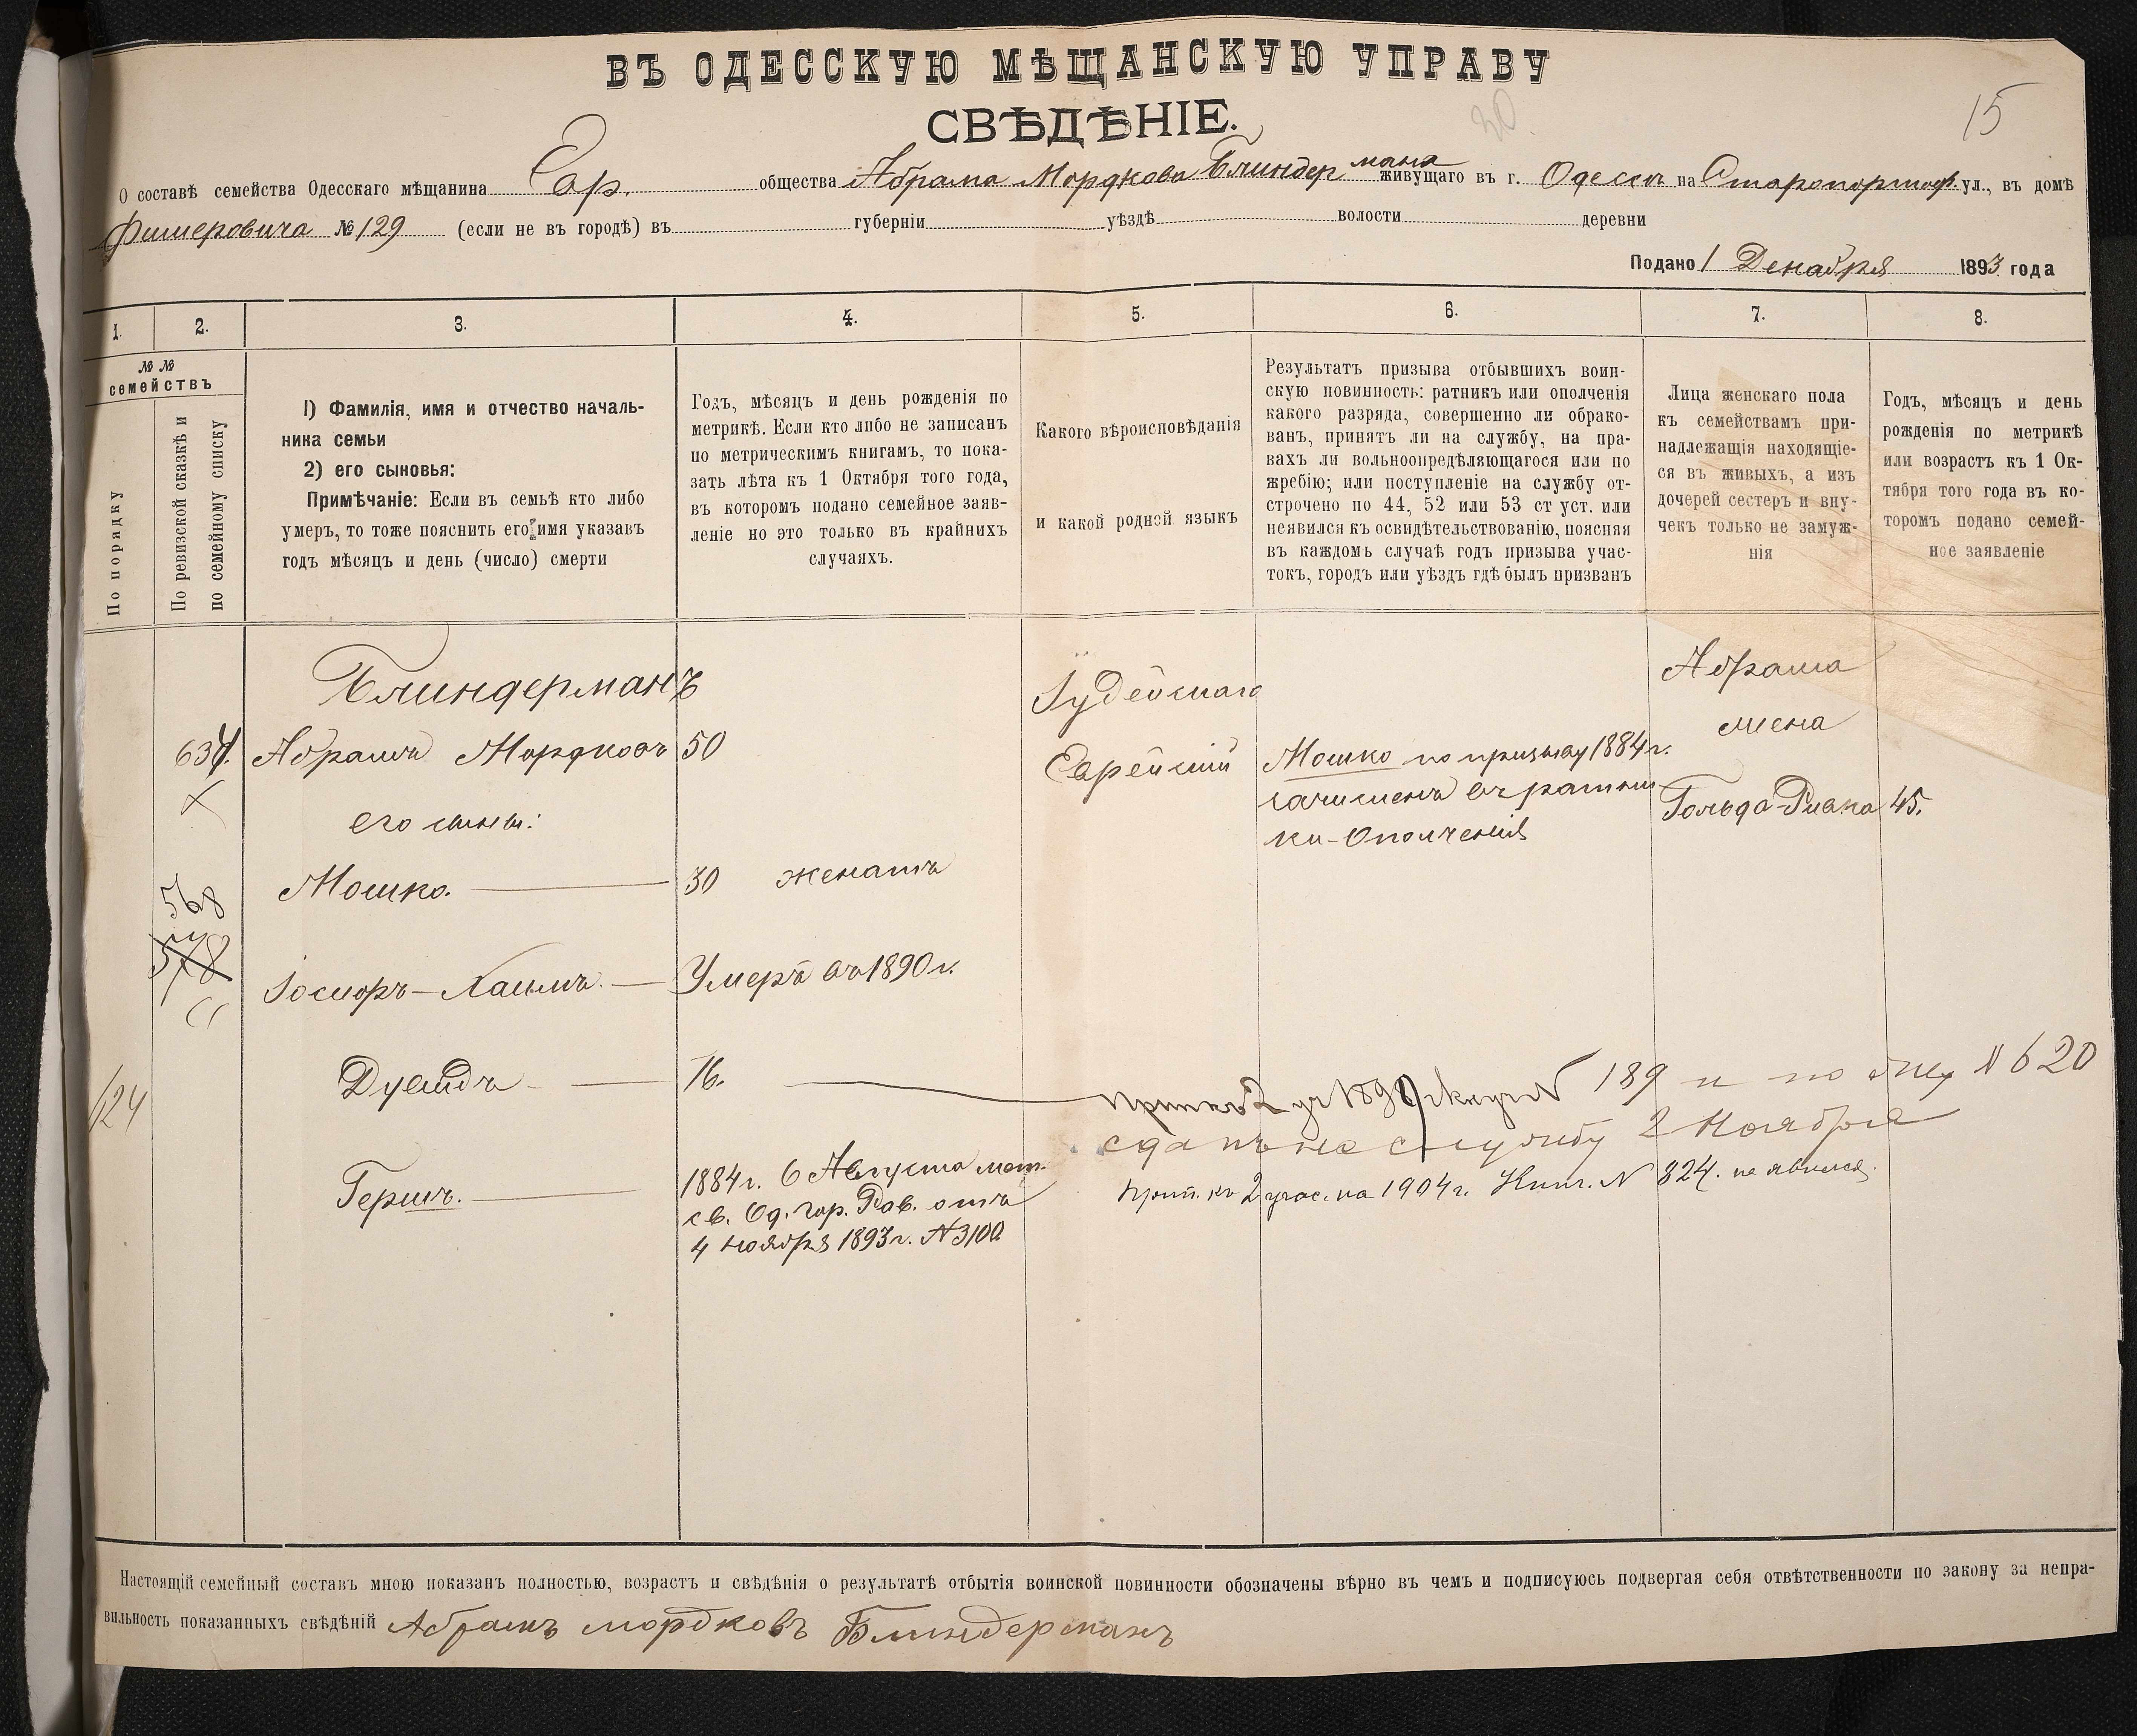 ВЪ ОДЕССКУЮ МѢЩАНСКУЮ УПРАВУ
СВѢДѢНІЕ.
30
15
О составѣ семейства Одесскаго мѣщанина Евр. общества Абрама Мордкова Блиндермана живущаго въ г. Одессѣ на Старопортоф. ул., въ домѣ
Фишеровича № 129 (если не въ городѣ) въ губерніи уѣздѣ волости деревни
Подано 1 Декабря 1893 года
1. 2. 3. 4. 5. 6. 7. 8.
№ №
семействъ
По порядку
По ревизской сказкѣ и
по семейному списку
1) Фамилія, имя и отчество началь-
ника семьи
2) его сыновья:
Примѣчаніе: Если въ семьѣ кто либо
умеръ, то тоже пояснить его имя указавъ
годъ мѣсяцъ и день (число) смерти
Годъ, мѣсяцъ и день рожденія по
метрикѣ. Если кто либо не записанъ
по метрическимъ книгамъ, то пока-
зать лѣта къ 1 Октября того года,
въ которомъ подано семейное заяв-
леніе но это только въ крайнихъ
случаяхъ.
Какого вѣроисповѣданія
и какой родной языкъ
Результатъ призыва отбывшихъ воин-
скую повинность: ратникъ или ополченія
какого разряда, совершенно ли обрако-
ванъ, принятъ ли на службу, на пра-
вахъ ли вольноопредѣляющагося или по
жребію; или поступленіе на службу от-
строчено по 44, 52 или 53 ст уст. или
неявился къ освидѣтельствованію, поясняя
въ каждомъ случаѣ годъ призыва учас-
токъ, городъ или уѣздъ гдѣ былъ призванъ
Лица женскаго пола
къ семействамъ при-
надлежащія находящіе-
ся въ живыхъ, а изъ
дочерей сестеръ и вну-
чекъ только не замуж-
нія
Годъ, мѣсяцъ и день
рожденія по метрикѣ
или возрастъ къ 1 Ок-
тября того года въ ко-
торомъ подано семей-
ное заявленіе
Блиндерманъ
Іудейскаго
Абрама
жена
634. Абрамъ Мордковъ 50
Еврейскій
Мошко по призыву 1884 г.
зачисленъ въ ратни-
ки-Ополченія
Гольда-Ривка 45.
его сыны:
568 Мошко. 30 женатъ
578
Іосифъ-Хаимъ. Умеръ въ 1890 г.
624
Дувидъ 16.
189 и по № 620
сданъ на службу 2 Ноября
Гершъ.
1884 г. 6 Августа мет.
св. Од. гор. Рав. отъ
4 ноября 1893 г. № 3100
Прип. къ 2 учас. на 1904 г. № 824. не явился.
Настоящій семейный составъ мною показанъ полностью, возрастъ и свѣдѣнія о результатѣ отбытія воинской повинности обозначены вѣрно въ чемъ и подписуюсь подвергая себя отвѣтственности по закону за непра-
вильность показанныхъ свѣдѣній Абрамъ мордковъ Блиндерманъ